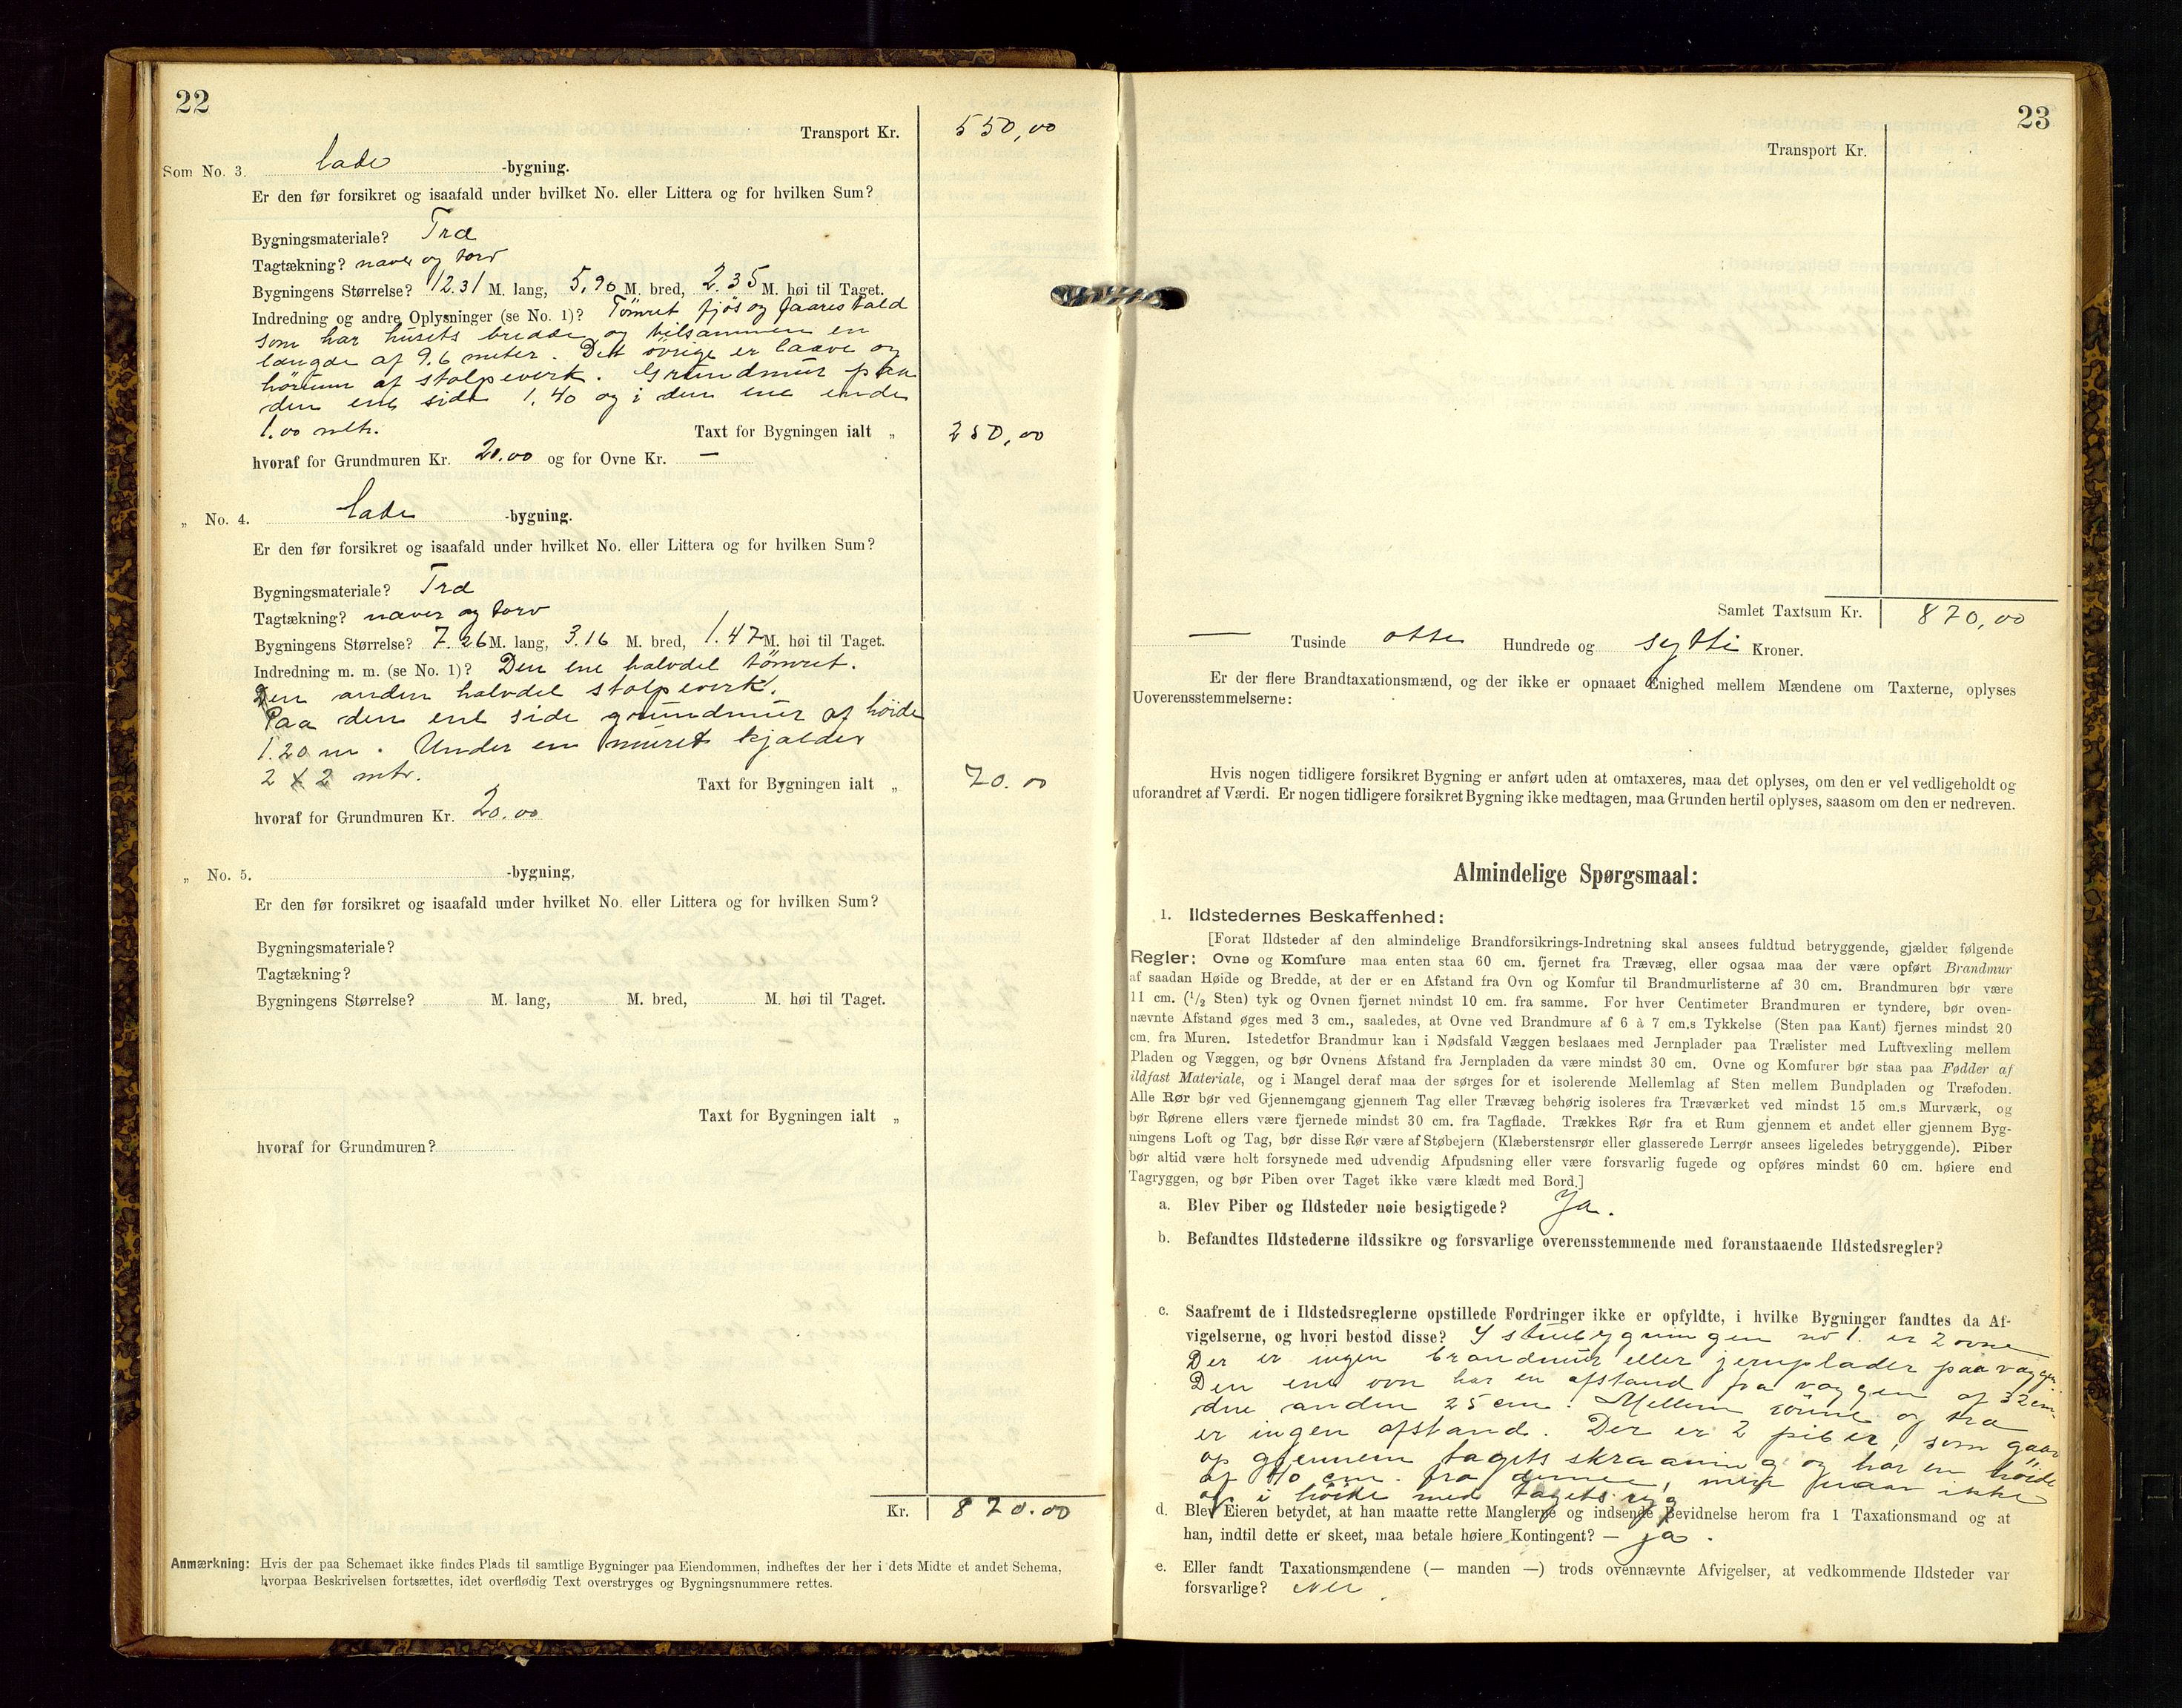 22
Transport Kr. 550,00
Som No. 3. lade -bygning.
Er den før forsikret og isaafald under hvilket No. eller Littera og for hvilken Sum?
Bygningsmateriale? Træ
Tagtækning? never og torv
Bygningens Størrelse? 12.31 M. lang, 5,90 M. bred, 2.35 M. høi til Taget.
Indredning og andre Oplysninger (se No. 1)? Tömret fjös og faarestald
som har husets bredde og tilsammen en
længde af 9.6 meter. Det övrige er laave og
hörum af stolpeverk. Grundmur paa
den ene side 1,40 og i den ene ende
1.00 mtr. Taxt for Bygningen ialt „ 250,00
hvoraf for Grundmuren Kr. 20.00 og for Ovne Kr. —
„ No. 4. lade -bygning.
Er den før forsikret og isaafald under hvilket No. eller Littera og for hvilken Sum?
Bygningsmateriale? Træ
Tagtækning? never og torv
Bygningens Størrelse? 7.26 M. lang, 3.16 M. bred, 1.47 M. høi til Taget.
Indredning m. m. (se No. 1)? Den ene halvdel tömret.
Den anden halvdel stolpeverk.
Paa den ene side grundmur af höide
1.20 m. Under en muret kjælder
2 x 2 mtr. Taxt for Bygningen ialt „ 70.00
hvoraf for Grundmuren Kr. 20.00
„ No. 5. -bygning,
Er den før forsikret og isaafald under hvilket No. eller Littera og for hvilken Sum?
Bygningsmateriale?
Tagtækning?
Bygningens Størrelse? M. lang, M. bred, M. høi til Taget.
Taxt for Bygningen ialt „
hvoraf for Grundmuren?
Kr. 870.00
Anmærkning: Hvis der paa Schemaet ikke findes Plads til samtlige Bygninger paa Eiendommen, indheftes der her i dets Midte et andet Schema,
hvorpaa Beskrivelsen fortsættes, idet overflødig Text overstryges og Bygningsnummere rettes.
23
Transport Kr.
Samlet Taxtsum Kr. 870,00
— Tusinde otte Hundrede og sytti Kroner.
Er der flere Brandtaxationsmænd, og der ikke er opnaaet Enighed mellem Mændene om Taxterne, oplyses
Uoverensstemmelserne:
Hvis nogen tidligere forsikret Bygning er anført uden at omtaxeres, maa det oplyses, om den er vel vedligeholdt og
uforandret af Værdi. Er nogen tidligere forsikret Bygning ikke medtagen, maa Grunden hertil oplyses, saasom om den er nedreven.
Almindelige Spørgsmaal:
1. Ildstedernes Beskaffenhed:
[Forat Ildsteder af den almindelige Brandforsikrings-Indretning skal ansees fuldtud betryggende, gjælder følgende
Regler: Ovne og Komfure maa enten staa 60 cm. fjernet fra Trævæg, eller ogsaa maa der være opført Brandmur
af saadan Høide og Bredde, at der er en Afstand fra Ovn og Komfur til Brandmurlisterne af 30 cm. Brandmuren bør være
11 cm. (1/2 Sten) tyk og Ovnen fjernet mindst 10 cm. fra samme. For hver Centimeter Brandmuren er tyndere, bør oven-
nævnte Afstand øges med 3 cm., saaledes, at Ovne ved Brandmure af 6 à 7 cm.s Tykkelse (Sten paa Kant) fjernes mindst 20
cm. fra Muren. Istedetfor Brandmur kan i Nødsfald Væggen beslaaes med Jernplader paa Trælister med Luftvexling mellem
Pladen og Væggen, og bør Ovnens Afstand fra Jernpladen da være mindst 30 cm. Ovne og Komfurer bør staa paa Fødder af
ildfast Materiale, og i Mangel deraf maa der sørges for et isolerende Mellemlag af Sten mellem Bundpladen og Træfoden.
Alle Rør bør ved Gjennemgang gjennem Tag eller Trævæg behørig isoleres fra Træværket ved mindst 15 cm.s Murværk, og
bør Rørene ellers være fjernede mindst 30 cm. fra Tagflade. Trækkes Rør fra et Rum gjennem et andet eller gjennem Byg-
ningens Loft og Tag, bør disse Rør være af Støbejern (Klæberstensrør eller glasserede Lerrør ansees ligeledes betryggende). Piber
bør altid være helt forsynede med udvendig Afpudsning eller være forsvarlig fugede og opføres mindst 60 cm. høiere end
Tagryggen, og bør Piben over Taget ikke være klædt med Bord.]
a. Blev Piber og Ildsteder nøie besigtigede? Ja.
b. Befandtes Ildstederne ildssikre og forsvarlige overensstemmende med foranstaaende Ildstedsregler?
c. Saafremt de i Ildstedsreglerne opstillede Fordringer ikke er opfyldte, i hvilke Bygninger fandtes da Af-
vigelserne, og hvori bestod disse? I stuebygningen no 1. er 2 ovne
Der er ingen brandmur eller jernplader paa væggen.
Den ene ovn har en afstand fra væggen af 32 cm.
den anden 25 cm. Mellem rörene og træ
er ingen afstand. Der er 2 piber, som gaar
op gjennem tagets skraaning og har en höide
af 40 cm. fra denne, men naar ikke
op i höide med tagets ryg
d. Blev Eieren betydet, at han maatte rette Manglerne og indsende Bevidnelse herom fra 1 Taxationsmand og at
han, indtil dette er skeet, maa betale høiere Kontingent? — ja.
e. Eller fandt Taxationsmændene (— manden —) trods ovennævnte Afvigelser, at vedkommende Ildsteder var
forsvarlige? Nei.